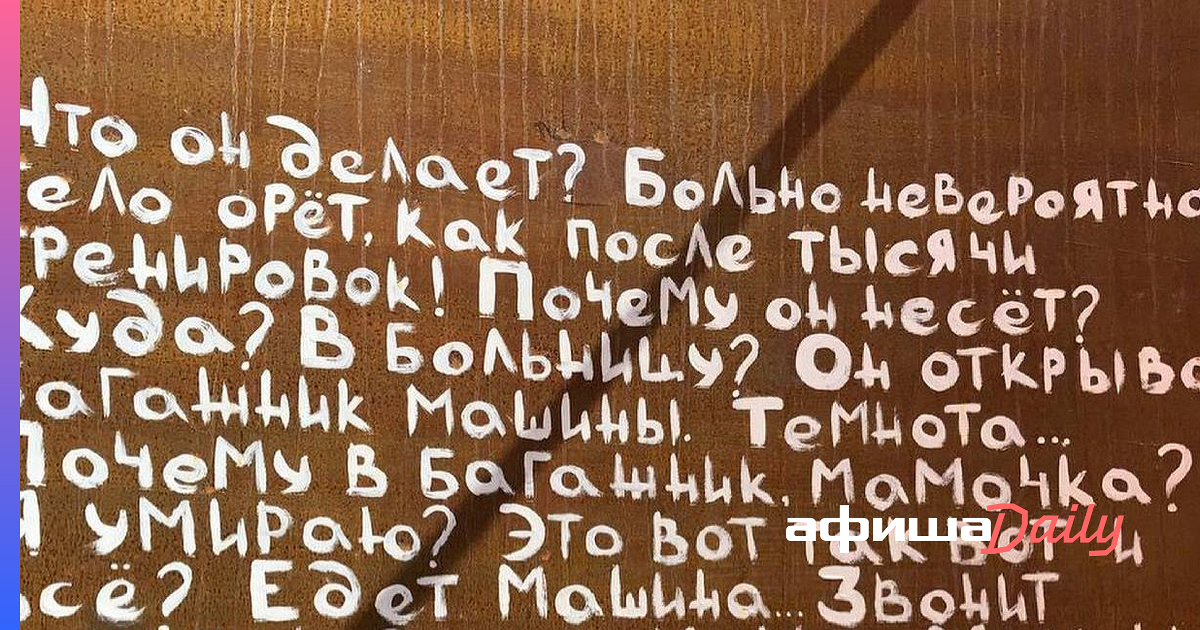 Что он делает? Больно невероятно
тело орёт, как после тысячи
тренировок! Почему он несёт?
Куда? В больницу? Он открыва
багажник машины. Темнота...
Почему в багажник. Мамочка?
Я умираю? Это вот так вот и
всё? Едет машина... Звонит
афиша Daily